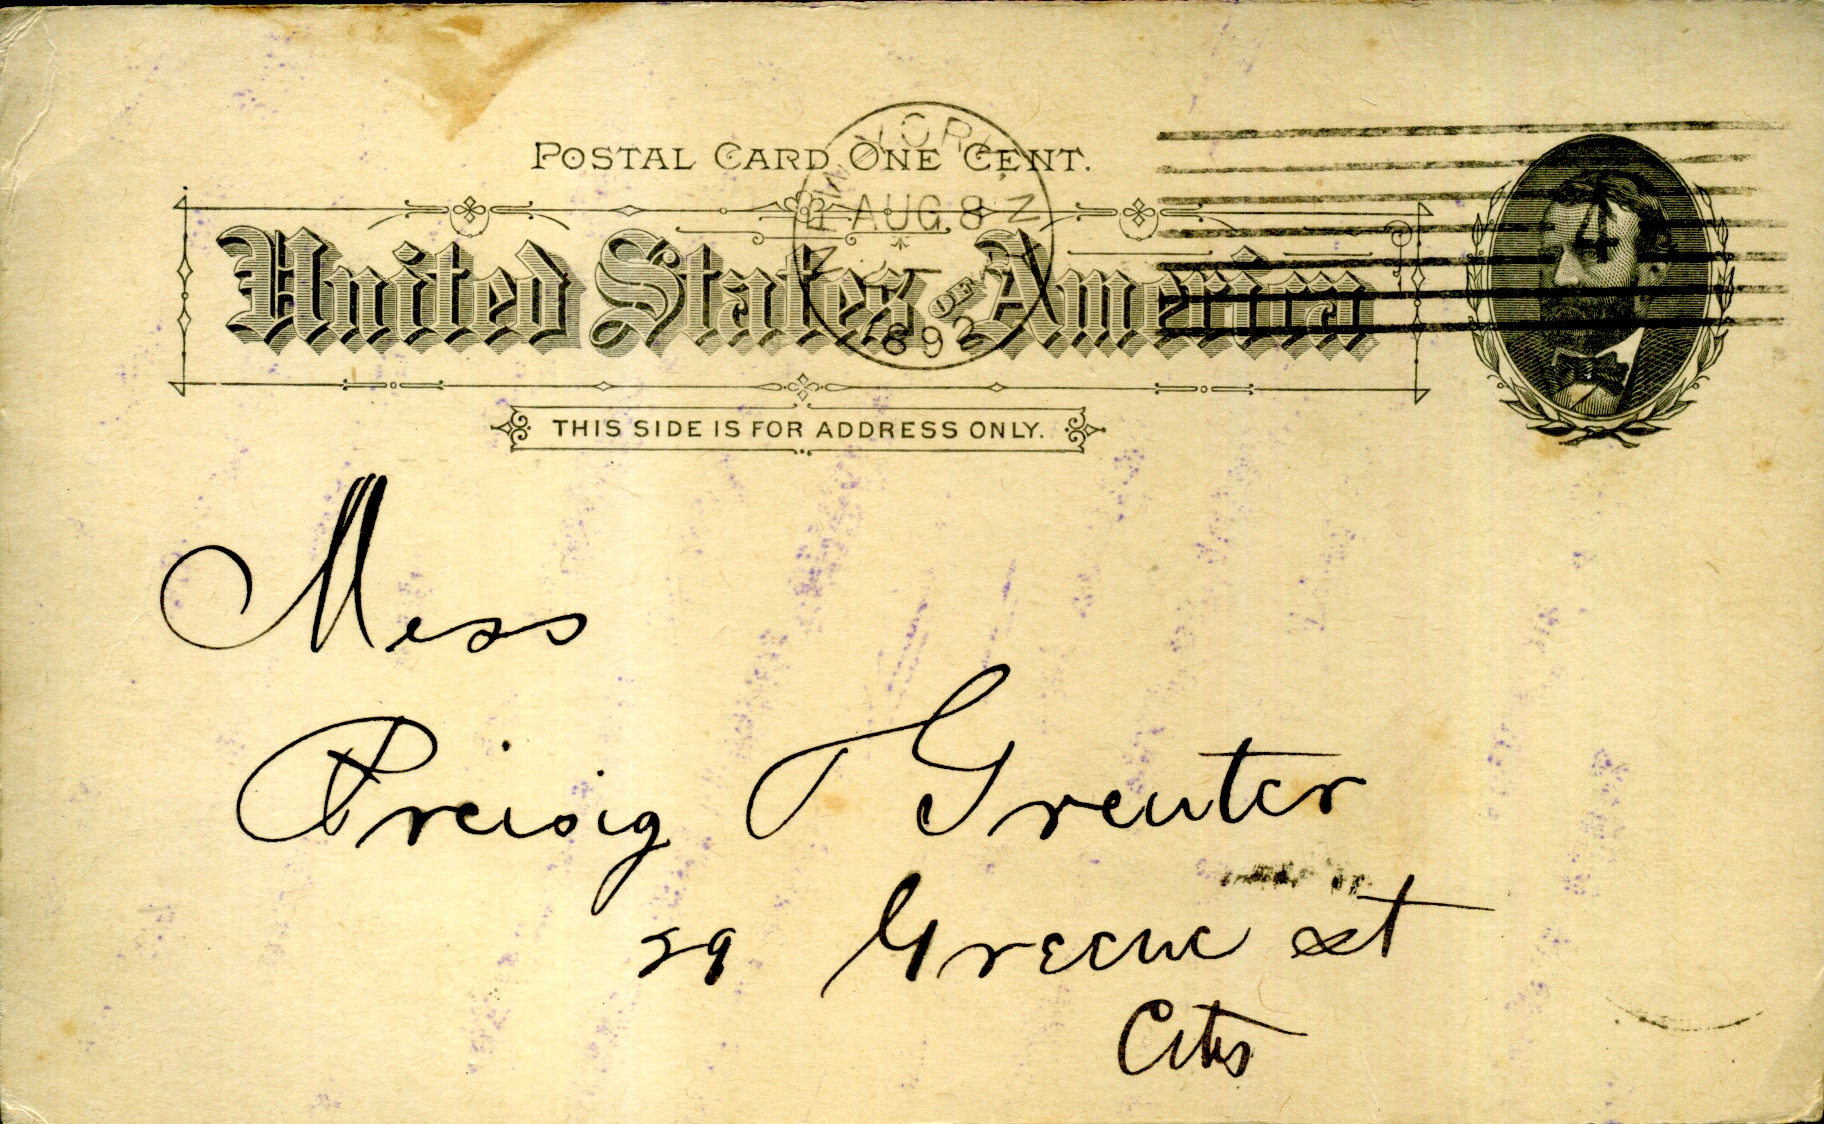 POSTAL CARD ONE CENT.
NEW YORK, N
AUG 8
1892
4
United States of America
THIS SIDE IS FOR ADDRESS ONLY.
Mess
Preisig & Greuter
29 Greene st
City